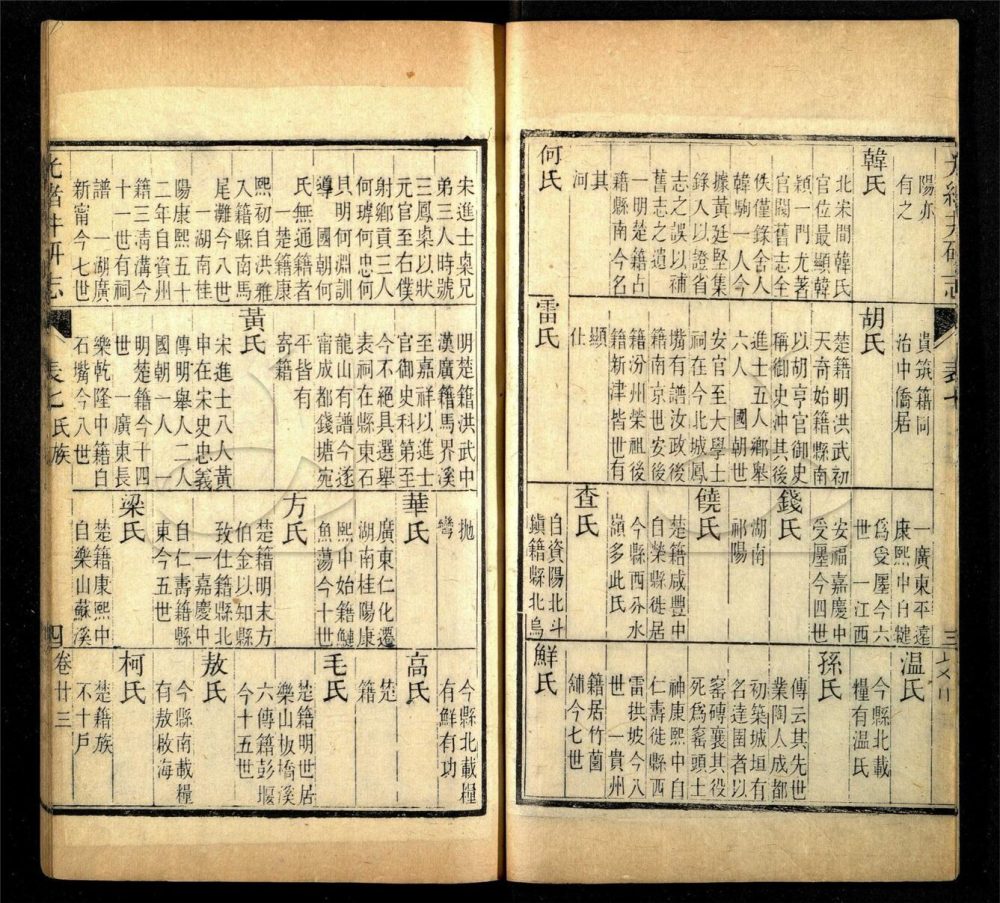 陽亦
有之
韓氏
北宋間韓氏
官位最顯韓
穎一門尤著
官閥舊志全
佚僅錄舍人
韓駒一人今
據黃廷堅集
錄入以證省
志之誤以補
舊志之遺
一明楚籍占
籍縣南今名
其
河
何氏
貴筑籍同
治中僑居
胡氏
楚籍明洪武初
天奇始籍縣南
以胡亨官御史
稱御史沖其後
進士五人鄉舉
六人 國朝世
安官至大學士
祠在今北城鳳
嘴有譜汝政後
籍南京世安後
籍汾州榮祖後
籍新津皆世有
顯
仕
雷氏
一廣東平遠
康熙中自犍
爲受廛今六
世 一江西
安福嘉慶中
受廛今四世
錢氏
湖南
祁陽
饒氏
楚籍咸豐中
自榮縣徙居
今縣西分水
嶺多此氏
查氏
自資陽北斗
鎭籍縣北烏
温氏
今縣北載
糧有温氏
孫氏
傳云其先世
業陶人成都
初築城垣有
名達圍者以
窑磚襄其役
死爲窑頭土
神康熙中自
仁壽徙縣西
雷拱坡今八
世 一貴州
籍居竹薗
舖今七世
鮮氏
宋進士㮚兄
弟三人時號
三鳳㮚以狀
元官至右僕
射鄉貢三人
何璘何忠何
貝明何淵訓
導 國朝何
氏無通籍者
一楚籍康
熙初自洪雅
入籍縣南馬
尾灘今八世
一湖南桂
陽康熙五十
二年自資州
籍三清溝今
十一世有祠
譜 一湖廣
新甯今七世
明楚籍洪武中
漢廣籍馬界溪
至嘉祥以進士
官御史科第至
今不絕具選舉
表祠在縣東石
龍山有譜今遂
甯成都錢塘宛
平皆有
寄籍
黃氏
宋進士八人黃
申在宋史忠義
傳明舉人二人
國朝一人 一
明楚籍今十四
世 一廣東長
樂乾隆中籍白
石嘴今八世
拋
彎
華氏
廣東仁化遷
湖南桂陽康
熙中始籍鰱
魚蕩今十世
方氏
楚籍明末方
伯金以知縣
致仕籍縣北
一嘉慶中
自仁壽籍縣
東今五世
梁氏
楚籍康熙中
自樂山蘇溪
今縣北載糧
有鮮有功
高氏
楚
籍
毛氏
楚籍明世居
樂山坂橋溪
六傳籍彭堰
今十五世
敖氏
今縣南載糧
有敖啟海
柯氏
楚籍族
不十戶
光緒井研志
表七 氏族
四
卷廿三